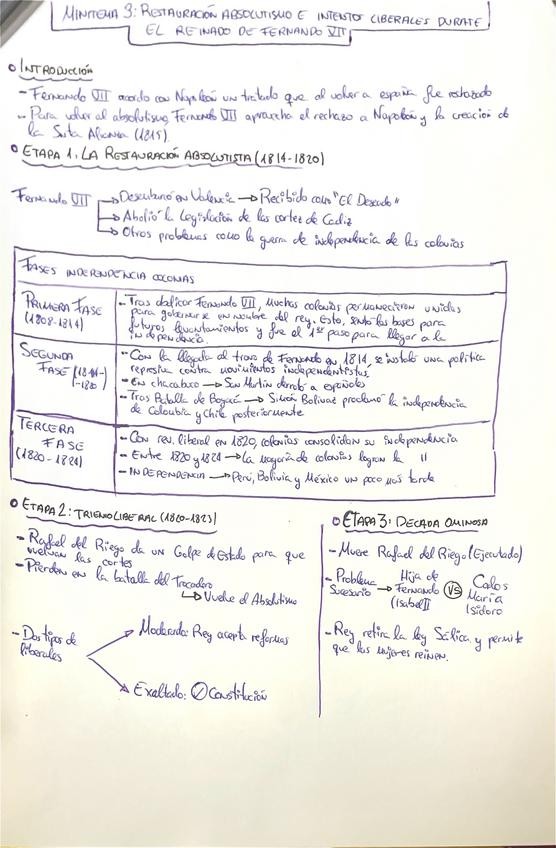 MINITEMA 3: RESTAURACIÓN ABSOLUTISMO E INTENTOS LIBERALES DURATE
EL REINADO DE FERNANDO VII
INTRODUCCIÓN
- Fernando VII acordo con Napoleón un tratado que al volver a españa fue rechazado
- Para volver al absolutismo, Fernando VII aprovecha el rechazo a Napoleón y la creación de
la Santa Alianza (1815).
ETAPA 1: LA RESTAURACIÓN ABSOLUTISTA (1814-1820)
Fernando VII → Desembarcó en Valencia → Recibido como "El Deseado"
→ Abolió la Legislación de las cortes de Cadiz
→ Otros problemas como la guerra de independencia de las colonias
FASES INDEPENDENCIA COLONIAS
PRIMERA FASE
(1808-1814)
- Tras abdicar Fernando VII, muchas colonias permanecieron unidas
para gobernarse en nombre del rey. Esto, sentó las bases para
futuros levantamientos y fue el 1er paso para llegar a la
independencia.
SEGUNDA
FASE (1814-
-1820)
- Con la llegada al trono de Fernando en 1814, se instaló una política
represiva contra movimientos independentistas
- En chacabuco → San Martín derrotó a españoles
- Tras Batalla de Bogacá → Simón Bolivar proclamó la independencia
de Colombia y Chile posteriormente
TERCERA
FASE
(1820-1824)
- Con rev. liberal en 1820, colonias consolidan su independencia
- Entre 1820 y 1824 → La mayoría de colonias logran la "
- INDEPENDENCIA → Perú, Bolivia y México un poco más tarde
ETAPA 2: TRIENIO LIBERAL (1820-1823)
- Rafael del Riego da un Golpe de Estado para que
vuelvan las cortes
- Pierden en la batalla del Trocadero
→ Vuelve el Absolutismo
- Dos tipos de
liberales
Moderada: Rey acepta reformas
Exaltado: Constitución
ETAPA 3: DECADA OMINOSA
- Muere Rafael del Riego (Ejecutado)
- Problema
Sucesorio → Hija de
Fernando
(Isabel II VS Calos
María
Isidoro
- Rey retira la ley Sálica y permite
que las mujeres reinen.